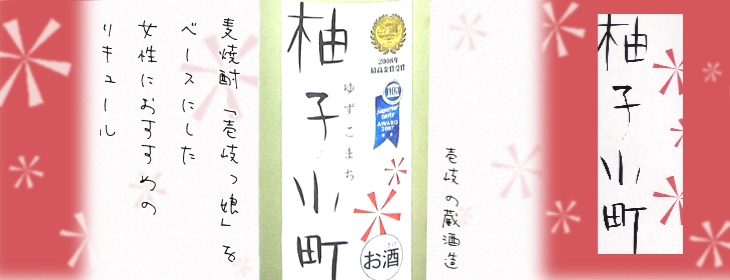 柚子小町
麦焼酎「壱岐っ娘」を
ベースにした
女性におすすめの
リキュール
柚子小町
ゆずこまち
2008年
最高金賞受賞
Superior
Taste
AWARD
2007
お酒
壱岐の蔵酒造